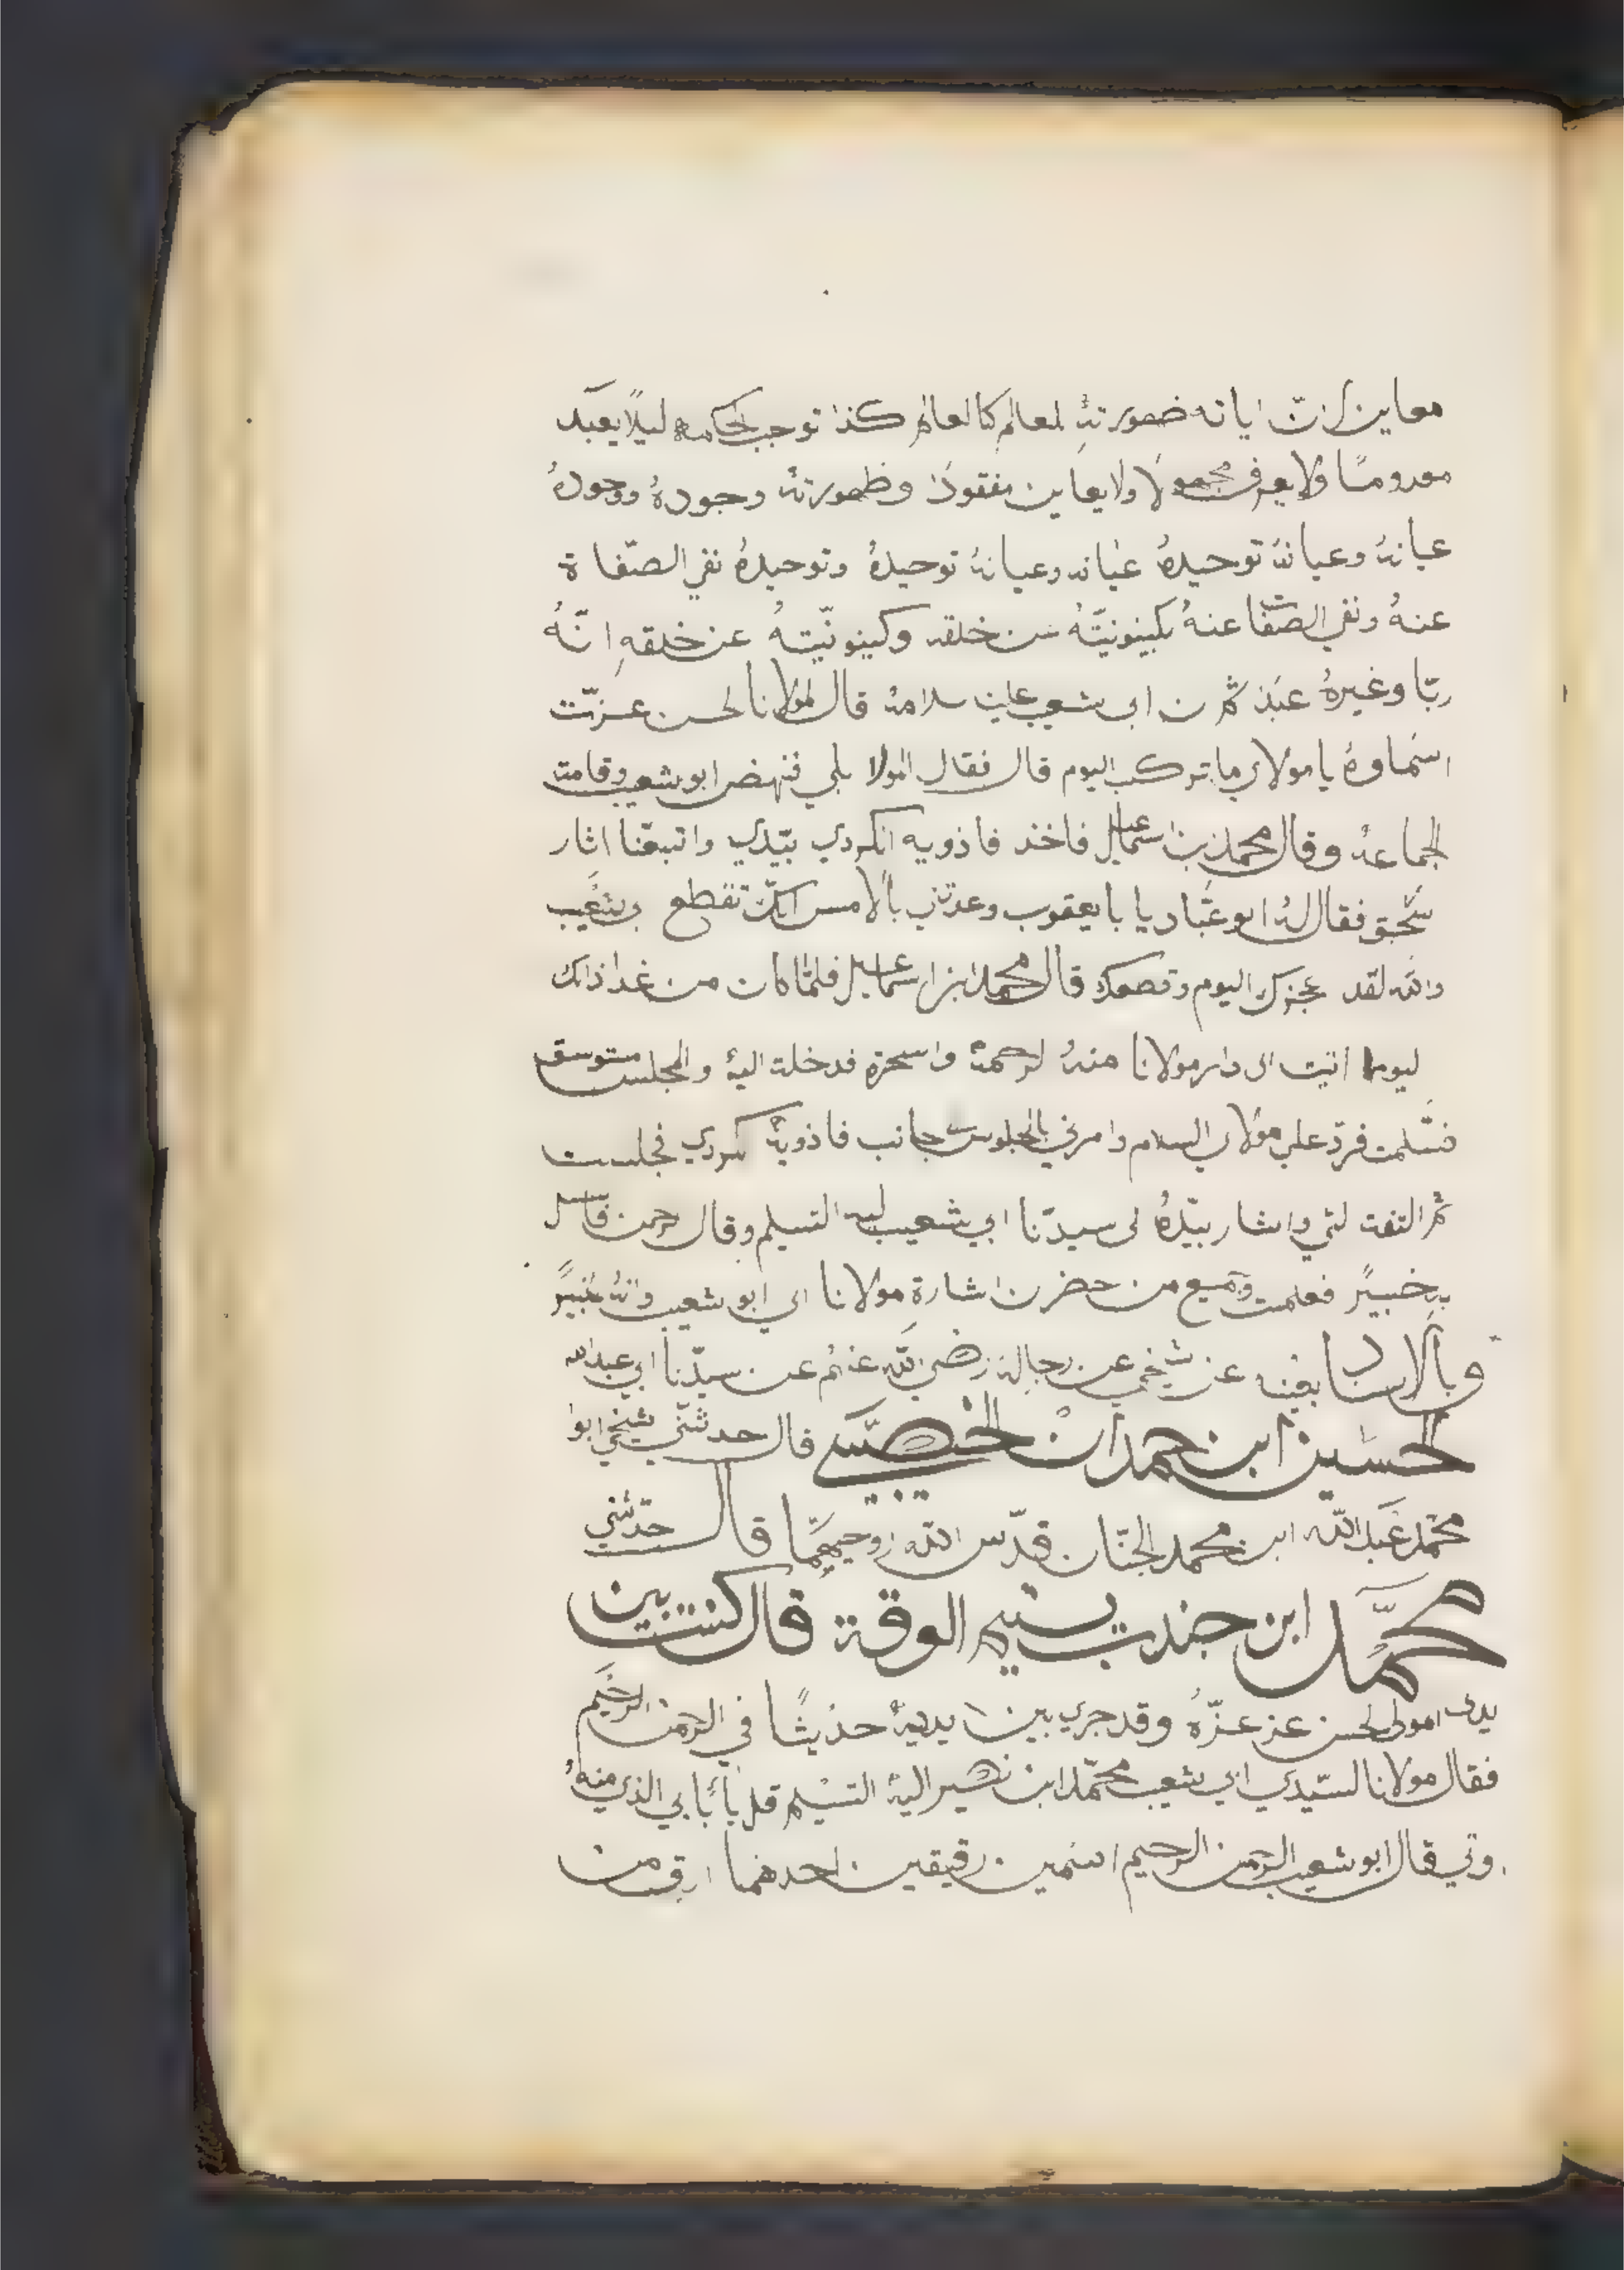 معاين لان اياته ضهورته لمعالم كالعالم كذا توجب الحكمه ليلا يعبد
معدوما ولا يعرف مجهولا ولا يعاين مفقود وظهورته وجوده ووجوده
عيانه وعيانه توحيده عيانه وعيانه توحيده وتوحيده نفي الصّفاة
عنه ونفي الصّفات عنه بكينونيّته من خلقه وكينونيّته عن خلقه انّه
ربّا وغيره عبد ثم ان ابي شعيب علينا سلامه قال لمولانا الحسن عزّت
اسماوه يا مولاي ما تركب اليوم قال فقال المولا بلي فنهض ابو شعيب وقامت
الجماعه وقال محمد بن اسماعيل فاخذ فاذويه الكردي بيّدي واتبعّنا اثار
سحق فقال له ابو عبّاد يا با يعقوب وعدتني بالامس انك تقطع بي شعيب
والله لقد عجزك اليوم وقصمك قال محمد ابن اسماعيل فلمّا كان من غد اذ لك
ليوم اتيت الى دار مولانا منه الرحمة واسحرة فدخلت اليه والمجلس متوسق
فسّلمت فردّ علي مولاي السلام وامرني بالجلوس جانب فاذوية كردي فجلست
ثم التفت لي واشار بيّده لى سيدّنا ابي شعيب ليه التسليم وقال رحمن فاسل
به خبيرًا فعلمت وجميع من حضر ان اشارة مولانا الي ابو شعيب وانه خبيرًا
وبالاسناد يقينه عن شيخي عن رجاله رضي الله عنهم عن سيدّنا ابي عبد الله
الحسين ابن حمدان الخصيبي قال حدثنّي شيخي ابوا
محمد عبد الله ابن محمد الجنّان قدّس الله روحيهمّا قال حدثني
محمّد ابن جندب يتيم الوقة قال كنت بين
يدى امولى الحسن عز عزّه وقد جري بين يديه حديثًا في الرحمن الرحيم
فقال مولانا لسّيدي ابي شعيب محمّد ابن نصير اليه التسليم قل يا بابي الذي منه
وتي قال ابو شعيب الرحمن الرحيم اسمين رقيقين احدهما ارق من